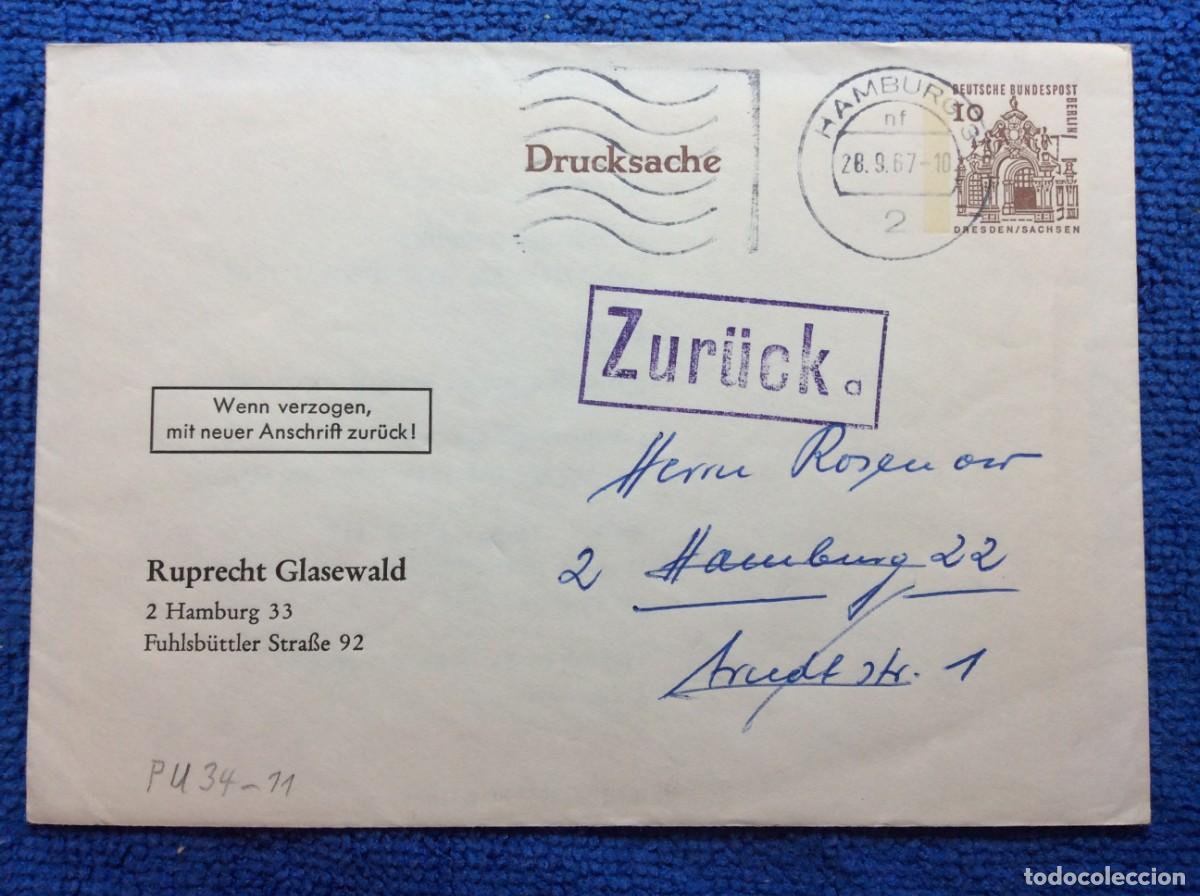 DEUTSCHE BUNDESPOST
BERLIN
10
DRESDEN/SACHSEN
HAMBURG
nf
28.9.67-10
2
Drucksache
Zurück a
Wenn verzogen,
mit neuer Anschrift zurück!
Herrn Rosenow
2 Hamburg 22
Arndtstr. 1
Ruprecht Glasewald
2 Hamburg 33
Fuhlsbüttler Straße 92
PU 34-11
todocoleccion